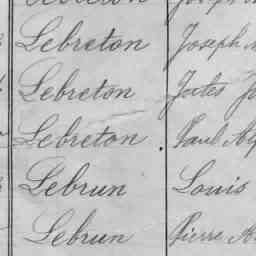 Lebreton Joseph
Lebreton Jules
Lebreton Paul
Lebrun Louis
Lebrun Pierre